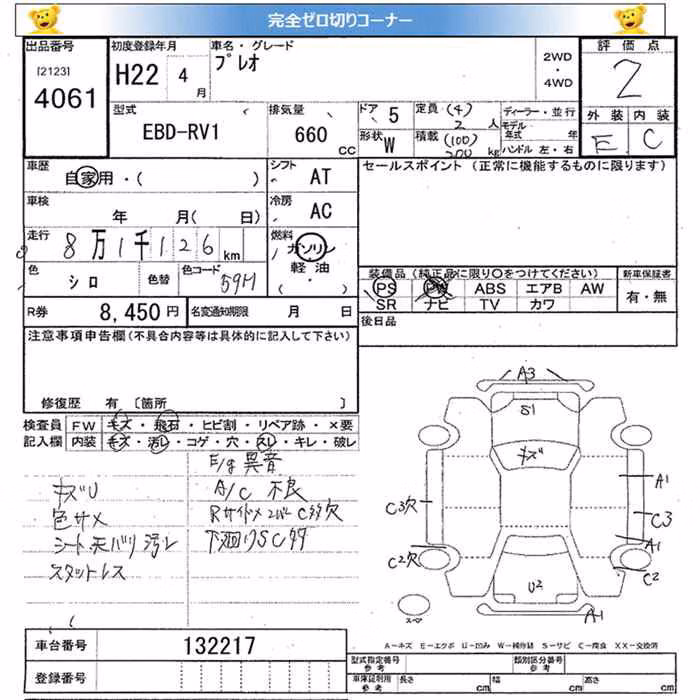 完全ゼロ切りコーナー
出品番号 初度登録年月 車名・グレード 2WD・4WD 評価点
[2123]
4061
H22 4月
プレオ
2
型式 排気量 ドア 5 定員 (4) 2 人 ディーラー・並行 外装 内装
EBD-RV1 660 CC 形状 W 積載 (100) 200 kg モデル年式 年 E C
ハンドル 左・右
車歴 自家用・( ) シフト AT セールスポイント (正常に機能するものに限ります)
車検 年 月( 日) 冷房 AC
走行 8万1千126 km 燃料 ガソリン
軽油
( )
色 シロ 色替 色コード 59H
装備品 (純正品に限り〇をつけてください) 新車保証書
PS PW ABS エアB AW 有・無
SR ナビ TV カワ
R券 8,450円 名変通知期限 月 日
後日品
注意事項申告欄(不具合内容等は具体的に記入して下さい)
修復歴 有 〔箇所 〕
検査員 FW キズ・飛石・ヒビ割・リペア跡・×要
記入欄 内装 キズ・汚レ・コゲ・穴・スレ・キレ・破レ
E/g 異音
キズU A/C 不良
色サメ
シート天バリ汚レ 下廻りSC多
スタットレス
A3
S1
キズ
A1
C3穴 C3
A1
C2穴 C2
U2
A1
スペア
A-キズ E-エクボ U-凹み W-補修跡 S-サビ C-腐食 XX-交換済
車台番号 132217
型式指定番号 参考 類別区分番号 参考
登録番号
車庫証明用 参考 長さ cm 幅 cm 高さ cm